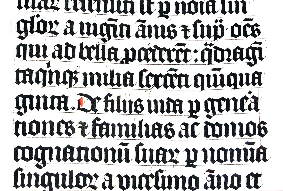 glor̄ a uigīti ānis ⁊ sup̄ oēs
qui ad bella p̄cederēt: q̄dragī
taq̄nq; milia sexcēti quīqua
ginta. De filiis iuda p̲ genēa
tiones ⁊ familias ac domos
cognationū suar̄ p̲ nomīa
singulor̄ a vicesimo āno et